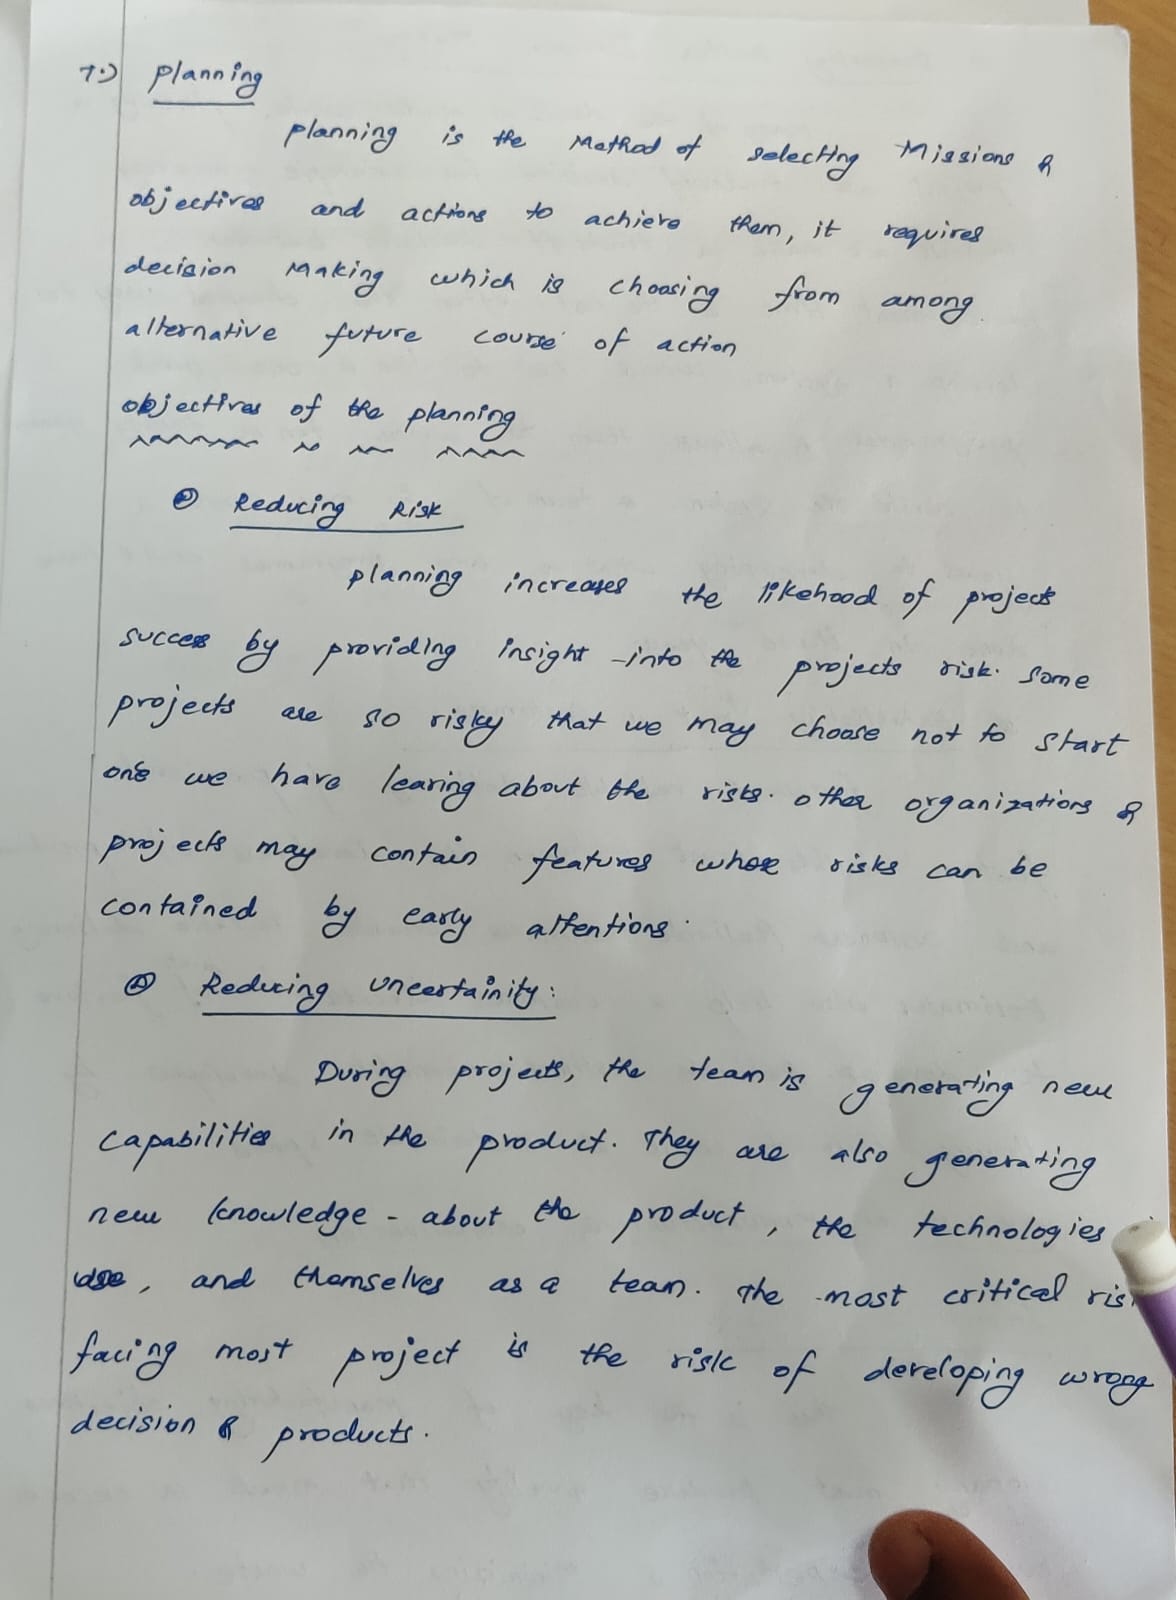 7.) planning
planning is the Method of selecting Missions &
objectives and actions to achieve them, it requires
decision Making which is choosing from among
alternative future course of action
objectives of the planning
Reducing Risk
planning increases the likehood of projects
success by providing insight into the projects risk. Some
projects are so risky that we may choose not to start
one we have learing about the risks. other organizations &
projects may contain features whose risks can be
contained by early attentions.
Reducing uncertainity:
During projects, the team is generating new
capabilities in the product. They are also generating
new knowledge - about the product, the technologies
use, and themselves as a team. The most critical
facing most project is the risk of developing wrong
decision & products.